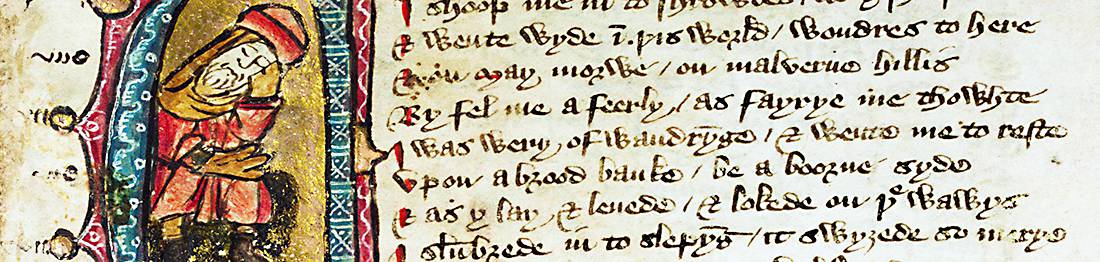 I shoop me in to shrowdes
& wente wyde ī þis world / wondres to here
& on may morwe / on malverne hillis
By fel me a feerly / as fayrye me thowhte
I was wery of wandryge / & wente me to reste
vpon a brood banke / be a boorne syde
& as y lay & lenede / & lokede on þe watrys
I slūbrede in to slepyg / it swyȝede so merye